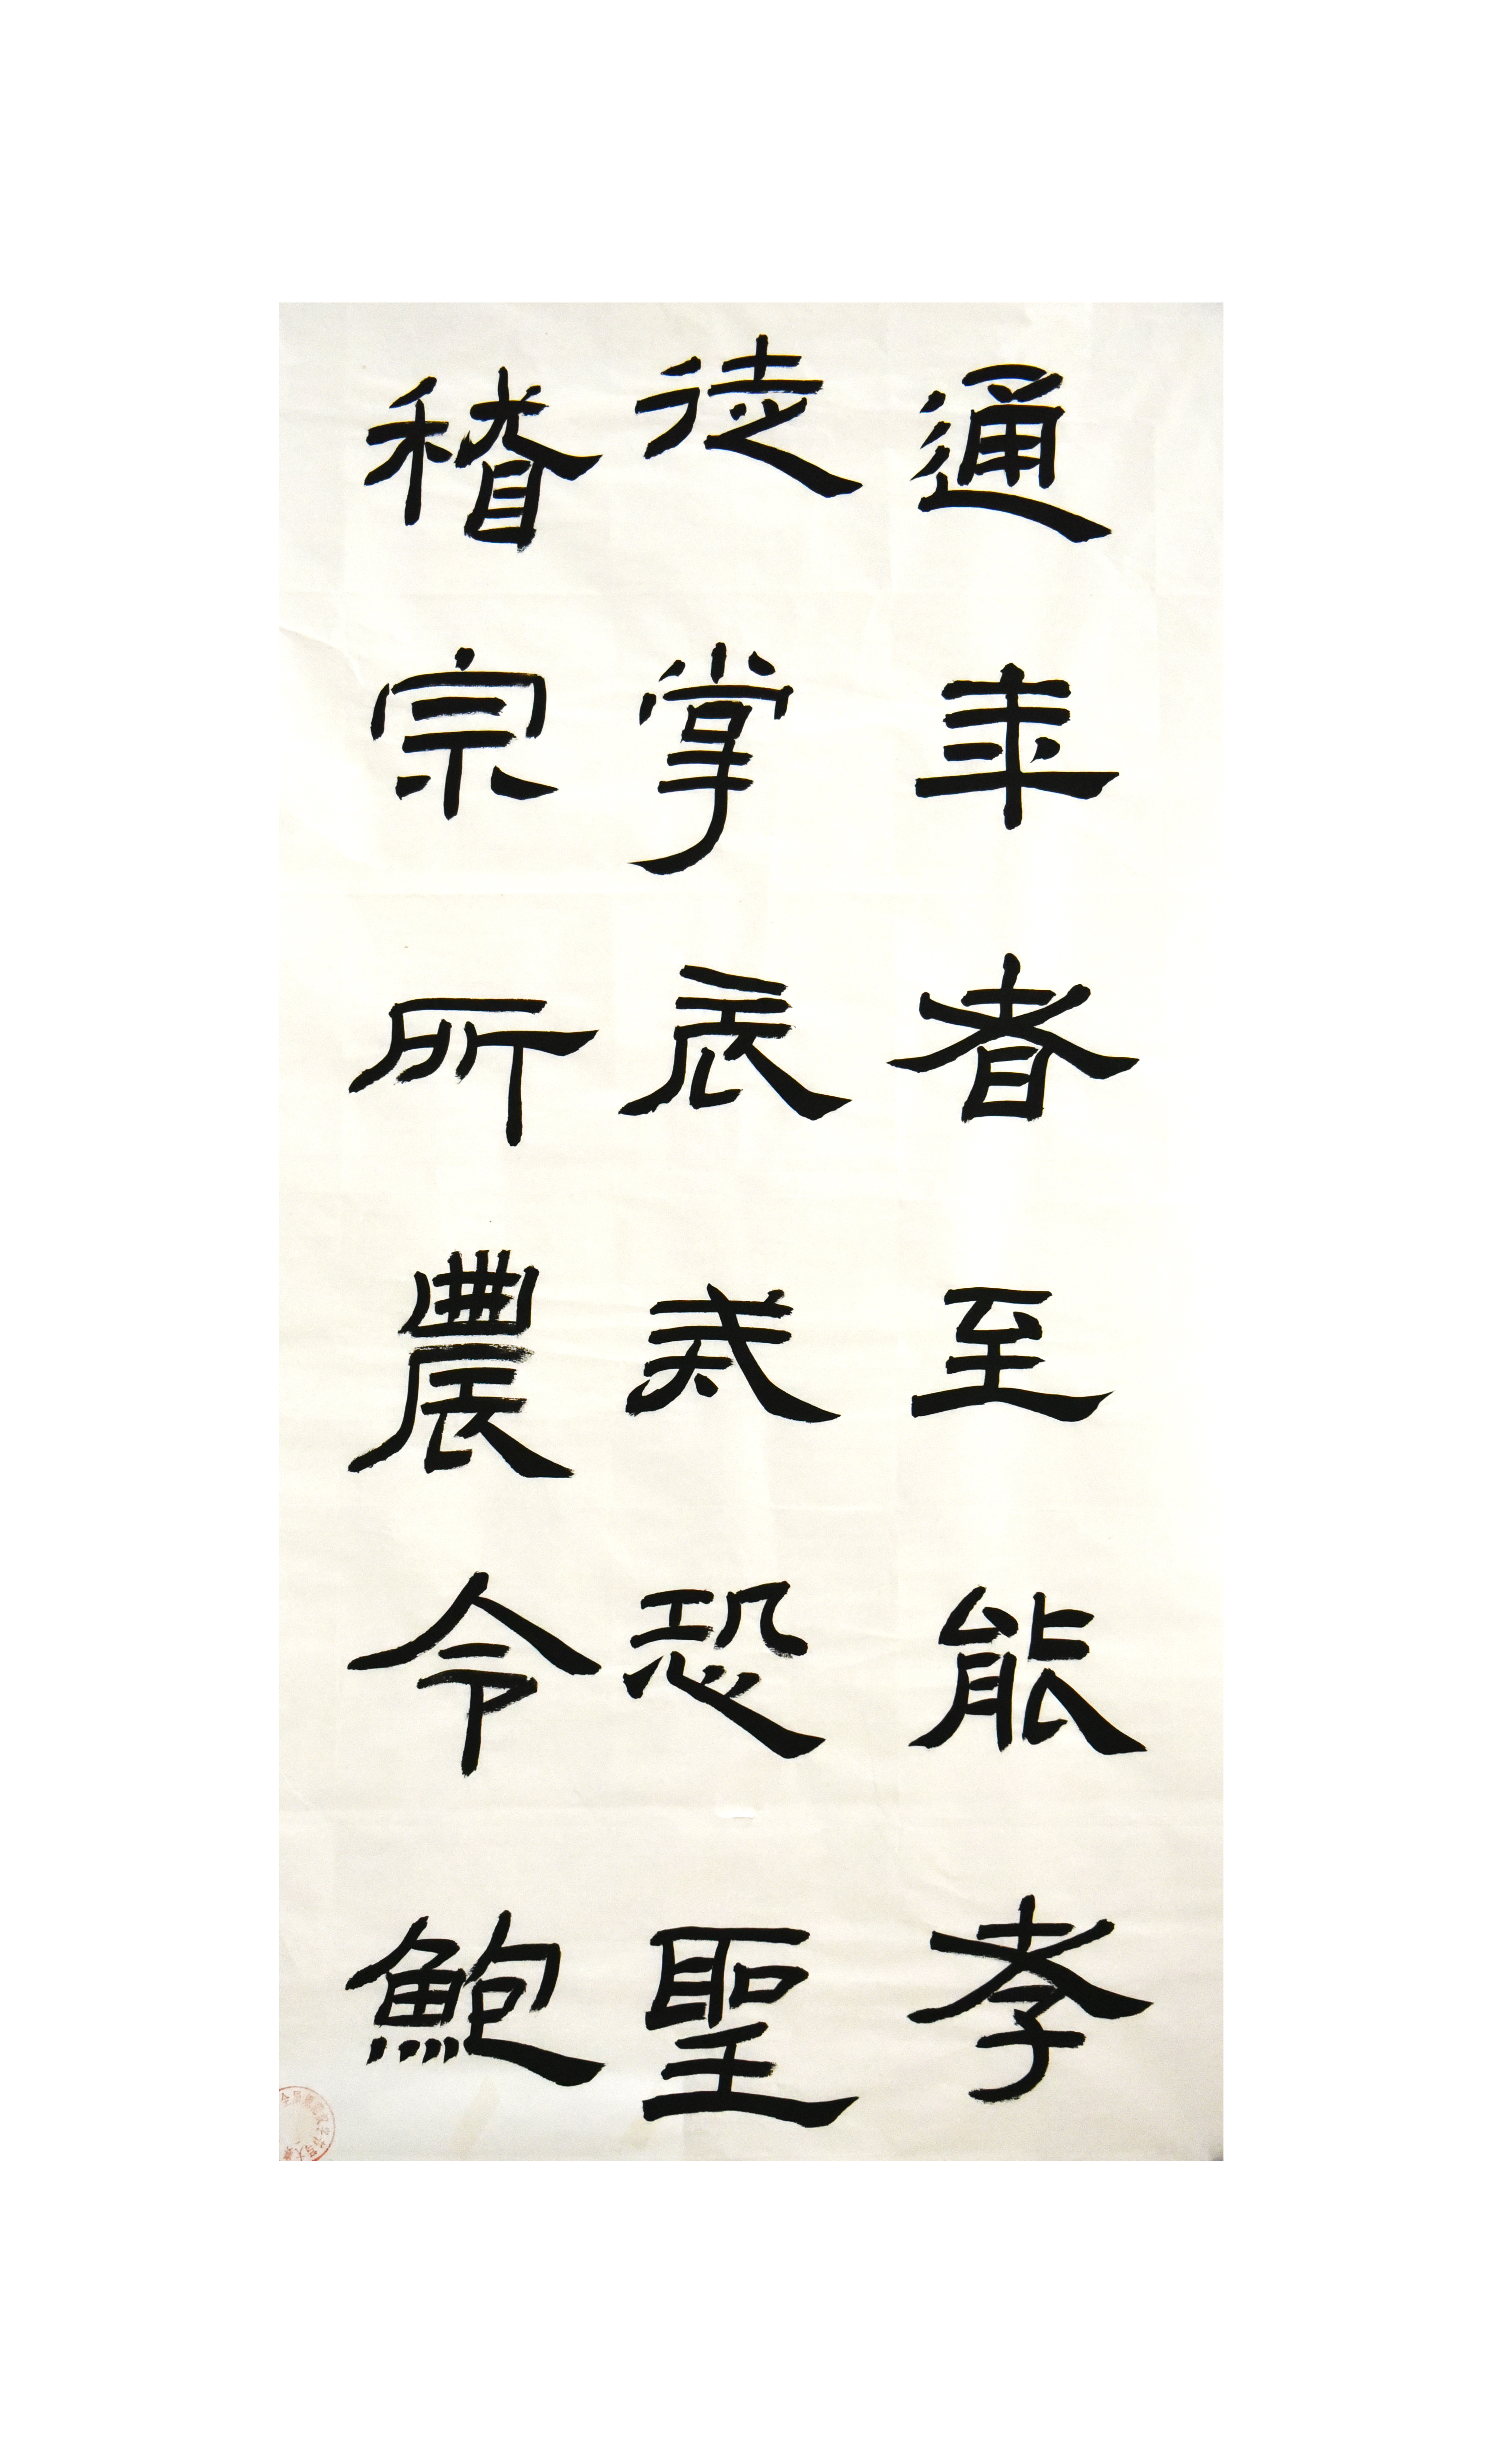 通年者至能孝
徒掌辰恐聖
稽宗所農令鮑